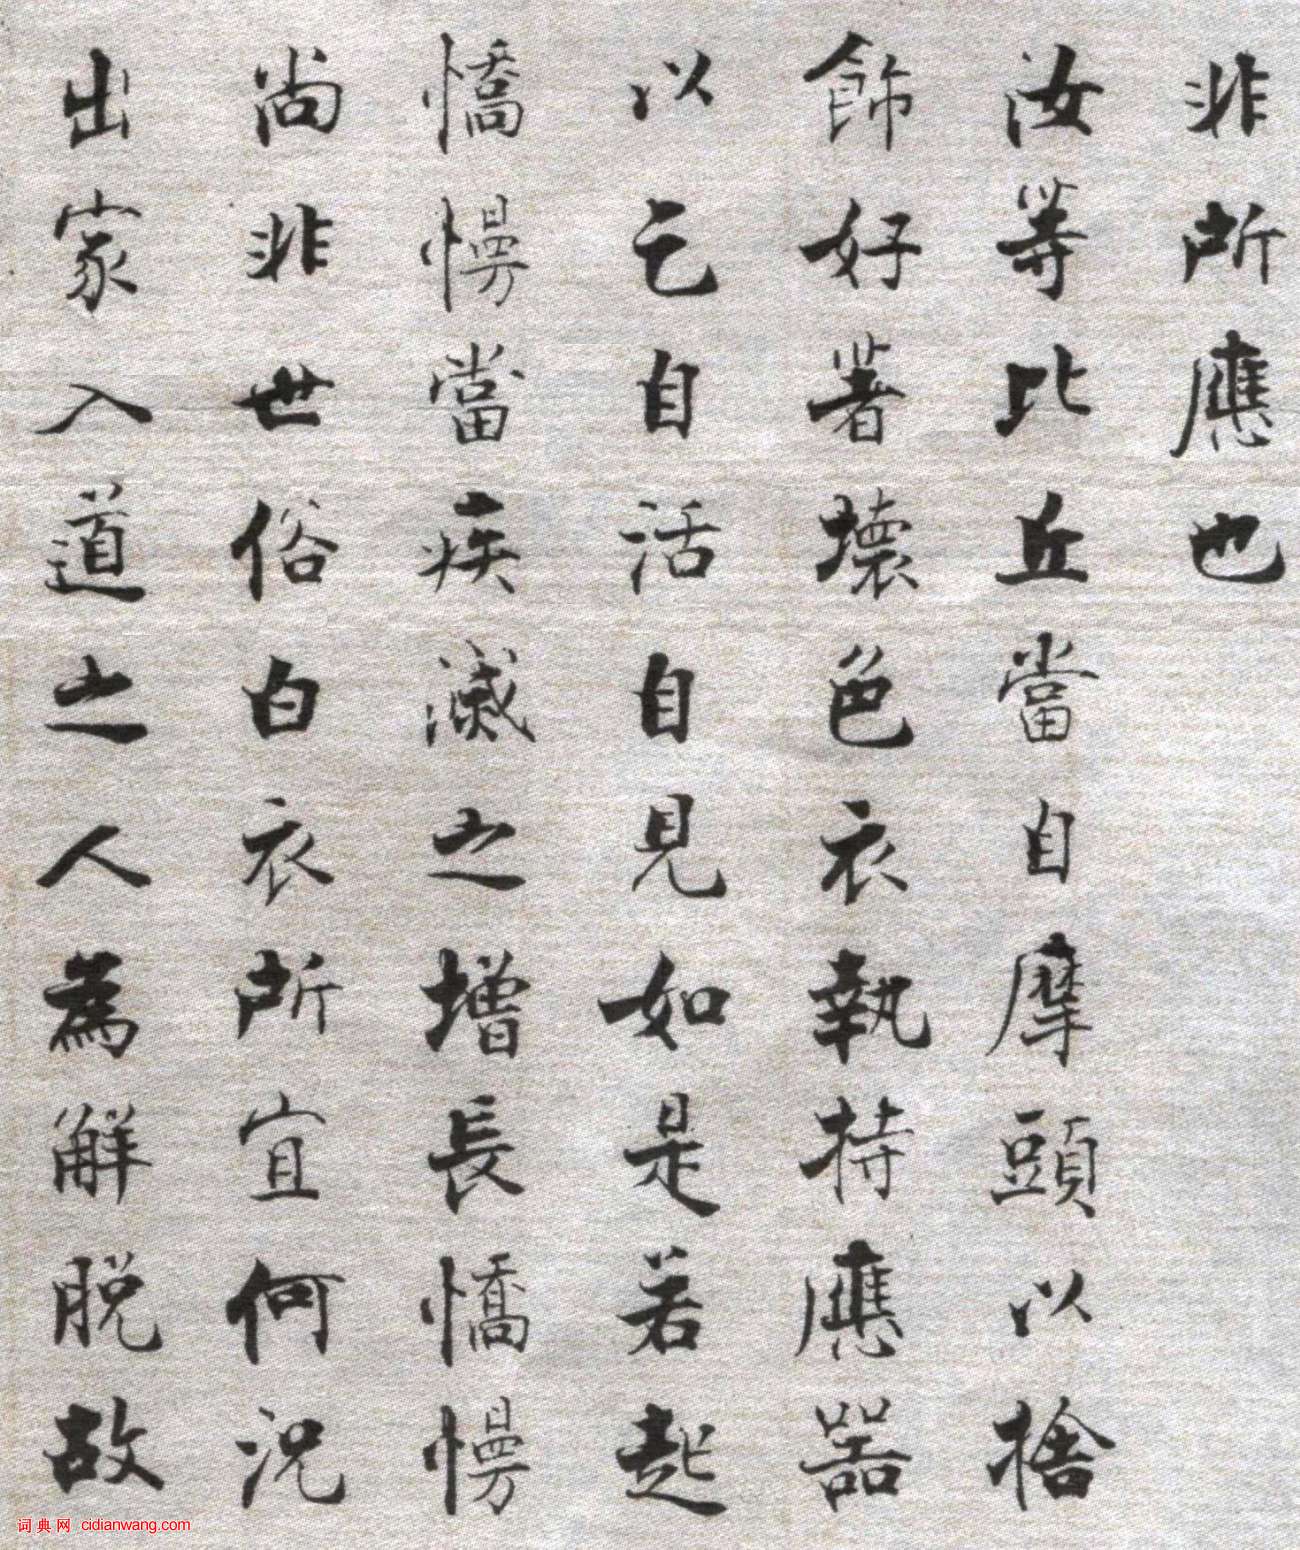 非所應也
汝等比丘當自摩頭以捨
飾好著壞色衣執持應器
以乞自活自見如是若起
憍慢當疾滅之增長憍慢
尚非世俗白衣所宜何況
出家入道之人為解脫故
词典网 cidianwang.com